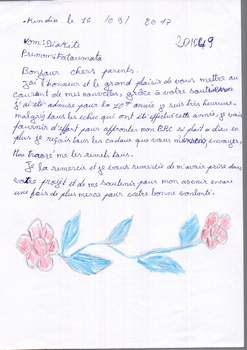 Kindia le 16 /09/ 2017
201049
Nom: Diakité
Prenom: Fatoumata
Bonjour chers parents.
J'ai l'honneur et le grand plaisir de vous mettre au
courant de mes nouvelles, grâce à votre soutien
j'ai été admise pour la 10ème année je suis très heureuse
malgré tous les echec qui ont été effectué cette année, je vais
fournir d'effort pour affronter mon BPC si plait a dieu en
plus je reçois tous les cadaux que vous m'envoyer,
Mon me les remet tous.
Je la remercie et je vous remercie de m'avoir prise dans
votre projet et de me soutenir pour mon avenir encore
une fois de plus merci pour votre bonne volonté.